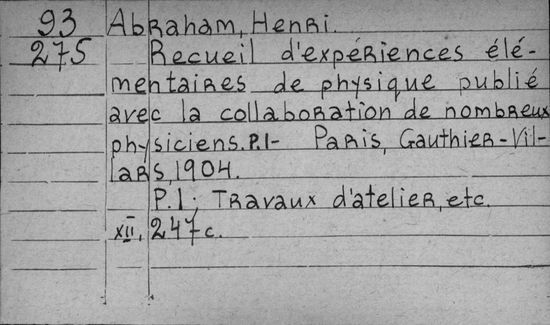 93 Abraham, Henri.
275 Recueil d'expériences élé-
mentaires de physique publié
avec la collaboration de nombreux
physiciens. P.1- Paris, Gauthier-Vil-
lars, 1904.
P.1: Travaux d'atelier, etc.
XII, 247c.